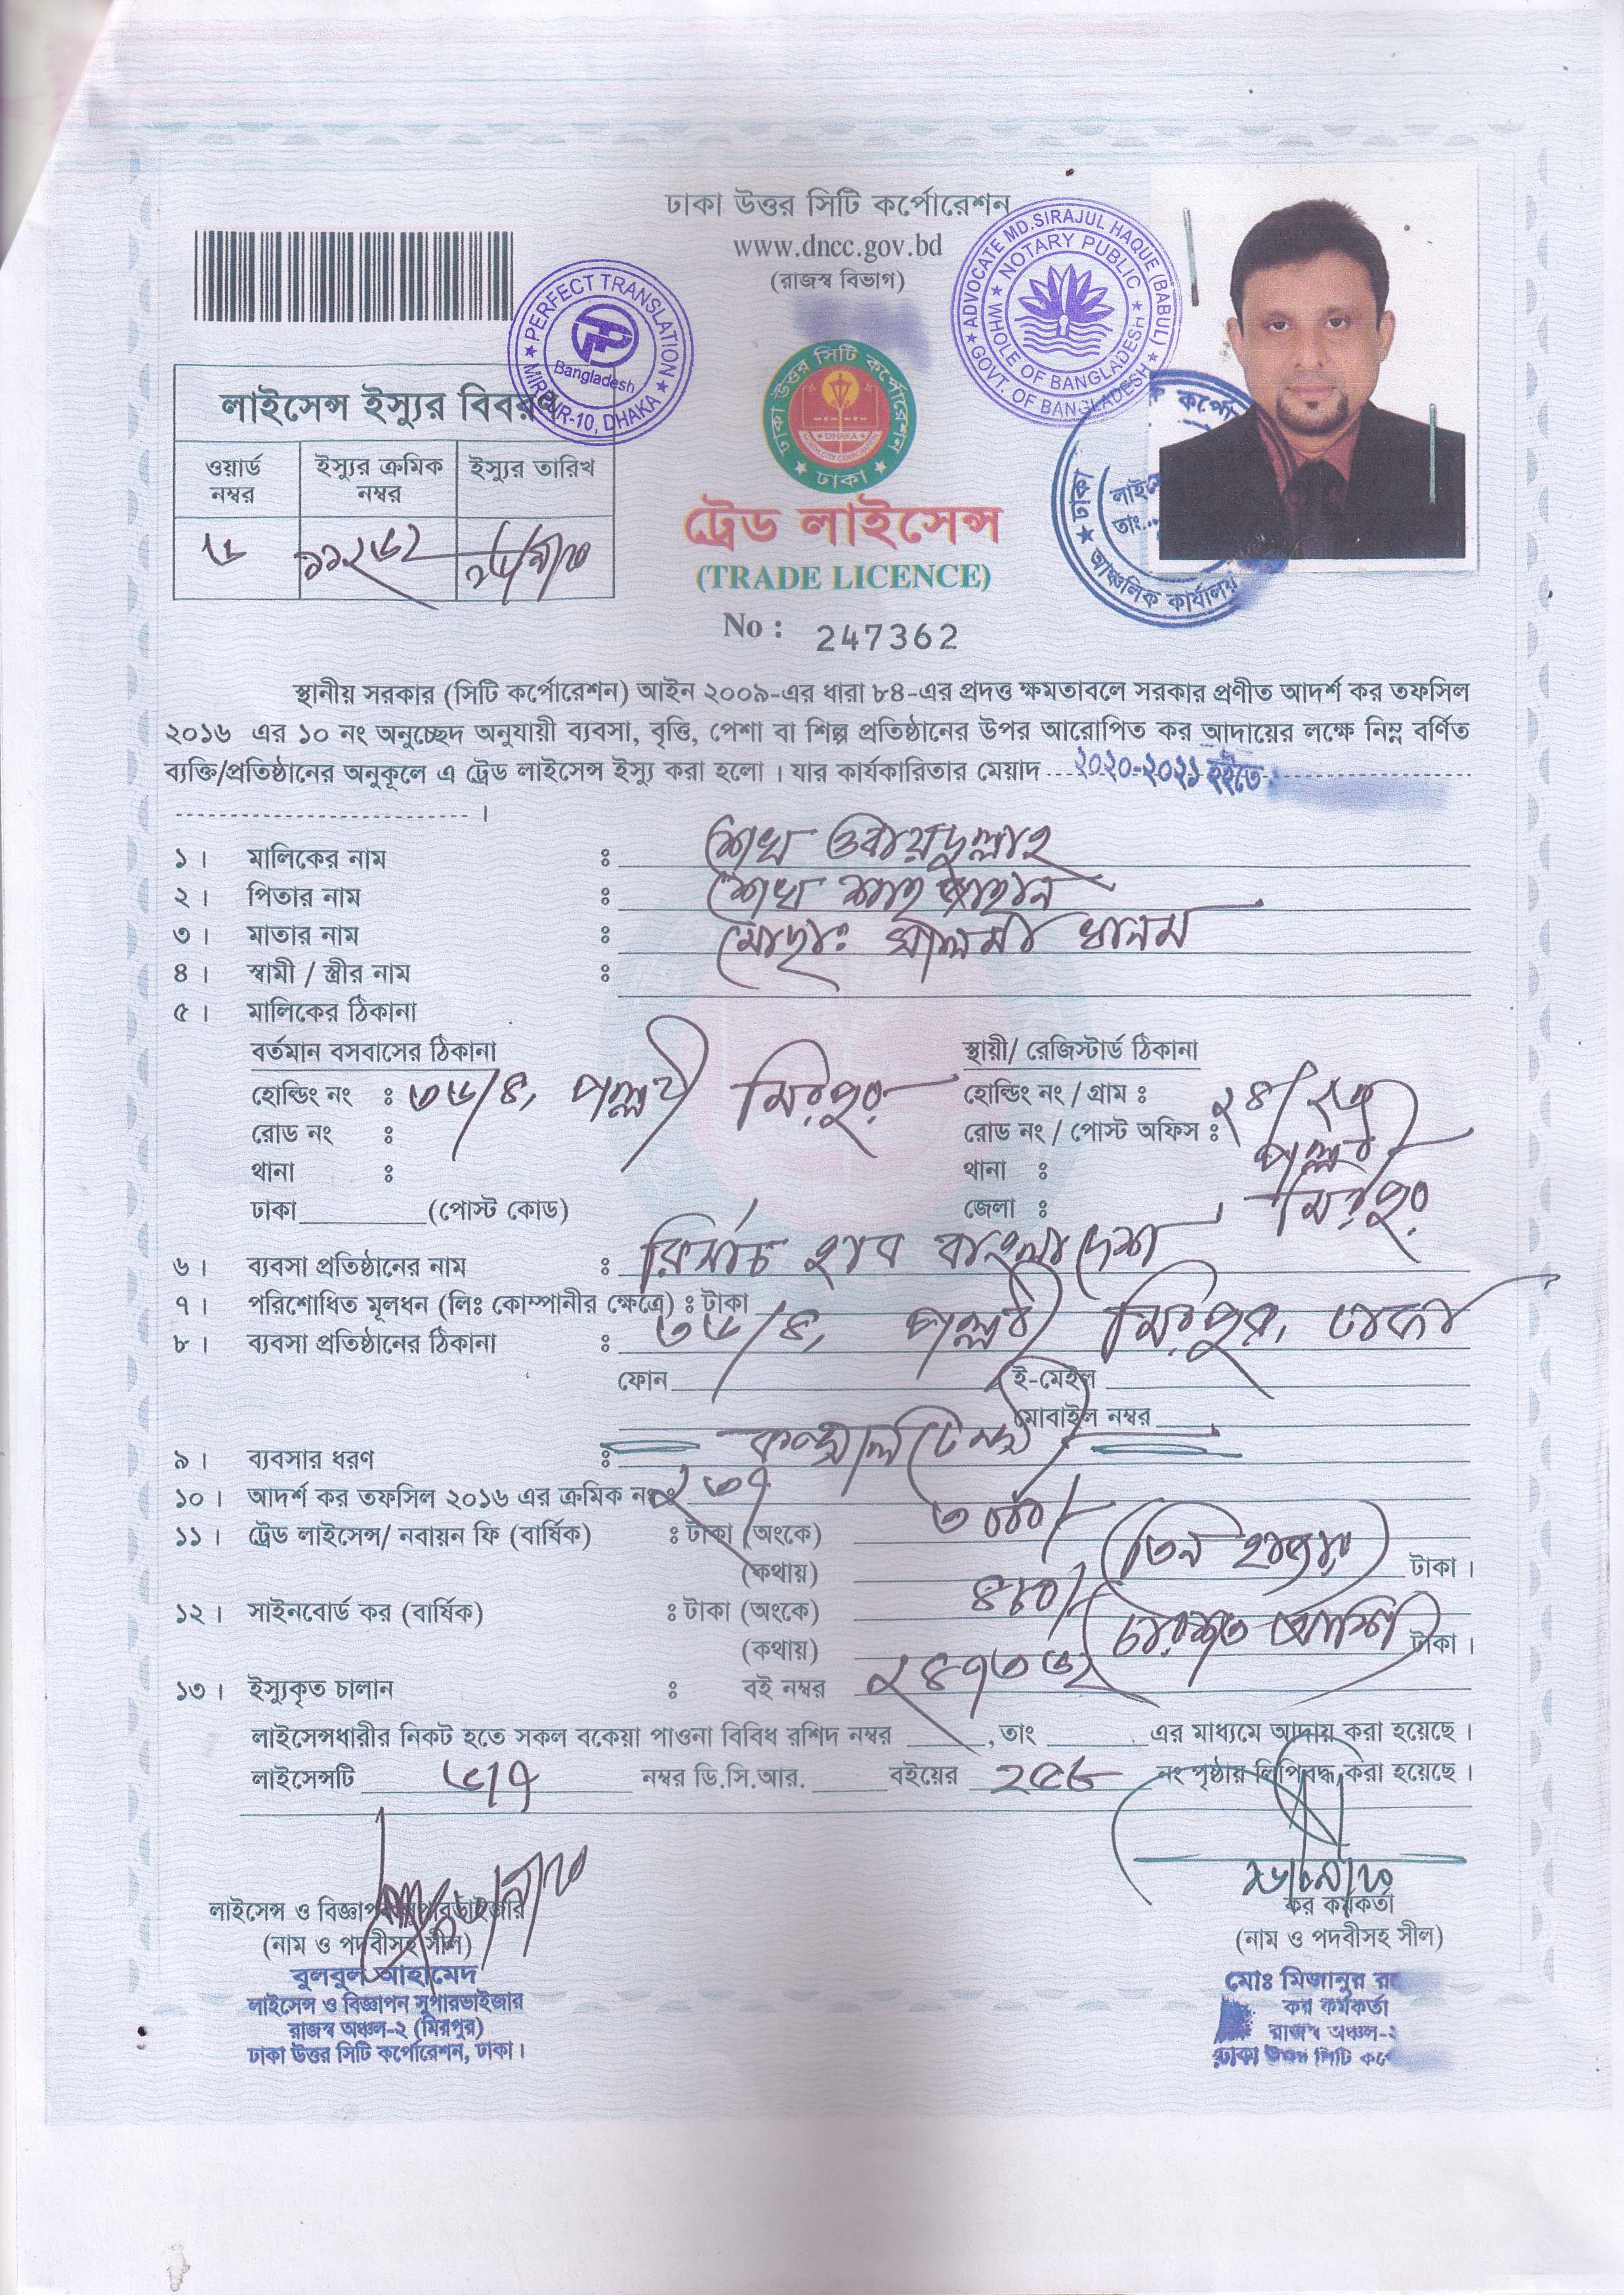 ঢাকা উত্তর সিটি কর্পোরেশন
www.dncc.gov.bd
(রাজস্ব বিভাগ)
PERFECT TRANSLATION
Bangladesh
MIRPUR-10, DHAKA
ADVOCATE MD.SIRAJUL HAQUE (BABUL)
NOTARY PUBLIC
WHOLE OF BANGLADESH
GOVT. OF BANGLADESH
ঢাকা উত্তর সিটি কর্পোরেশন
DHAKA
ঢাকা
আঞ্চলিক কার্যালয়
লাইসেন্স ইস্যুর বিবরণ
ওয়ার্ড নম্বর
ইস্যুর ক্রমিক নম্বর
ইস্যুর তারিখ
৬ ১১২৬২
ট্রেড লাইসেন্স
(TRADE LICENCE)
No : 247362
স্থানীয় সরকার (সিটি কর্পোরেশন) আইন ২০০৯-এর ধারা ৮৪-এর প্রদত্ত ক্ষমতাবলে সরকার প্রণীত আদর্শ কর তফসিল
২০১৬ এর ১০ নং অনুচ্ছেদ অনুযায়ী ব্যবসা, বৃত্তি, পেশা বা শিল্প প্রতিষ্ঠানের উপর আরোপিত কর আদায়ের লক্ষে নিম্ন বর্ণিত
ব্যক্তি/প্রতিষ্ঠানের অনুকূলে এ ট্রেড লাইসেন্স ইস্যু করা হলো । যার কার্যকারিতার মেয়াদ ২০২০-২০২১ হইতে
।
১ । মালিকের নাম ঃ শেখ ওবায়দুল্লাহ
২ । পিতার নাম ঃ শেখ শাহ জাহান
৩ । মাতার নাম ঃ মোছাঃ সালমা খানম
৪ । স্বামী / স্ত্রীর নাম ঃ
৫ । মালিকের ঠিকানা
বর্তমান বসবাসের ঠিকানা স্থায়ী/ রেজিস্টার্ড ঠিকানা
হোল্ডিং নং ঃ ৩৬/৪, পল্লবী মিরপুর হোল্ডিং নং / গ্রাম ঃ
রোড নং ঃ রোড নং / পোস্ট অফিস ঃ
পল্লবী
থানা ঃ থানা ঃ
মিরপুর
ঢাকা (পোস্ট কোড) জেলা ঃ
৬ । ব্যবসা প্রতিষ্ঠানের নাম ঃ রিসার্চ হাব বাংলাদেশ
৭ । পরিশোধিত মূলধন (লিঃ কোম্পানীর ক্ষেত্রে) ঃ টাকা
৮ । ব্যবসা প্রতিষ্ঠানের ঠিকানা ঃ ৩৬/৪, পল্লবী মিরপুর, ঢাকা
ফোন ই-মেইল
মোবাইল নম্বর
৯ । ব্যবসার ধরণ ঃ কন্সালটেন্সী
১০ । আদর্শ কর তফসিল ২০১৬ এর ক্রমিক নং ঃ ২৩৭
১১ । ট্রেড লাইসেন্স/ নবায়ন ফি (বার্ষিক) ঃ টাকা (অংকে) ৩০০০/-
(কথায়) (তিন হাজার) টাকা ।
১২ । সাইনবোর্ড কর (বার্ষিক) ঃ টাকা (অংকে) ৪৮০/-
(কথায়) (চারশত আশি) টাকা ।
১৩ । ইস্যুকৃত চালান ঃ বই নম্বর ২৪৭৩৬২
লাইসেন্সধারীর নিকট হতে সকল বকেয়া পাওনা বিবিধ রশিদ নম্বর , তাং এর মাধ্যমে আদায় করা হয়েছে ।
লাইসেন্সটি নম্বর ডি.সি.আর. বইয়ের নং পৃষ্ঠায় লিপিবদ্ধ করা হয়েছে ।
লাইসেন্স ও বিজ্ঞাপন সুপারভাইজার
(নাম ও পদবীসহ সীল)
বুলবুল আহামেদ
লাইসেন্স ও বিজ্ঞাপন সুপারভাইজার
রাজস্ব অঞ্চল-২ (মিরপুর)
ঢাকা উত্তর সিটি কর্পোরেশন, ঢাকা।
কর কর্মকর্তা
(নাম ও পদবীসহ সীল)
মোঃ মিজানুর
কর কর্মকর্তা
রাজস্ব অঞ্চল-২
ঢাকা উত্তর সিটি